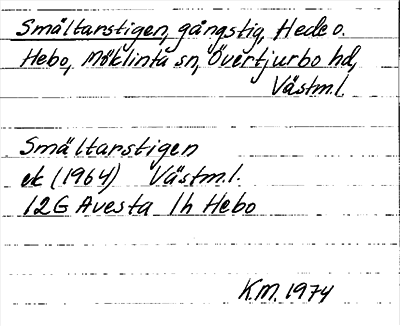 Smältarstigen, gångstig, Hede o.
Hebo, Möklinta sn, Övertjurbo hd,
Västm.l.
Smältarstigen
ek (1964) Västm.l.
12G Avesta 1h Hebo
K.M. 1974